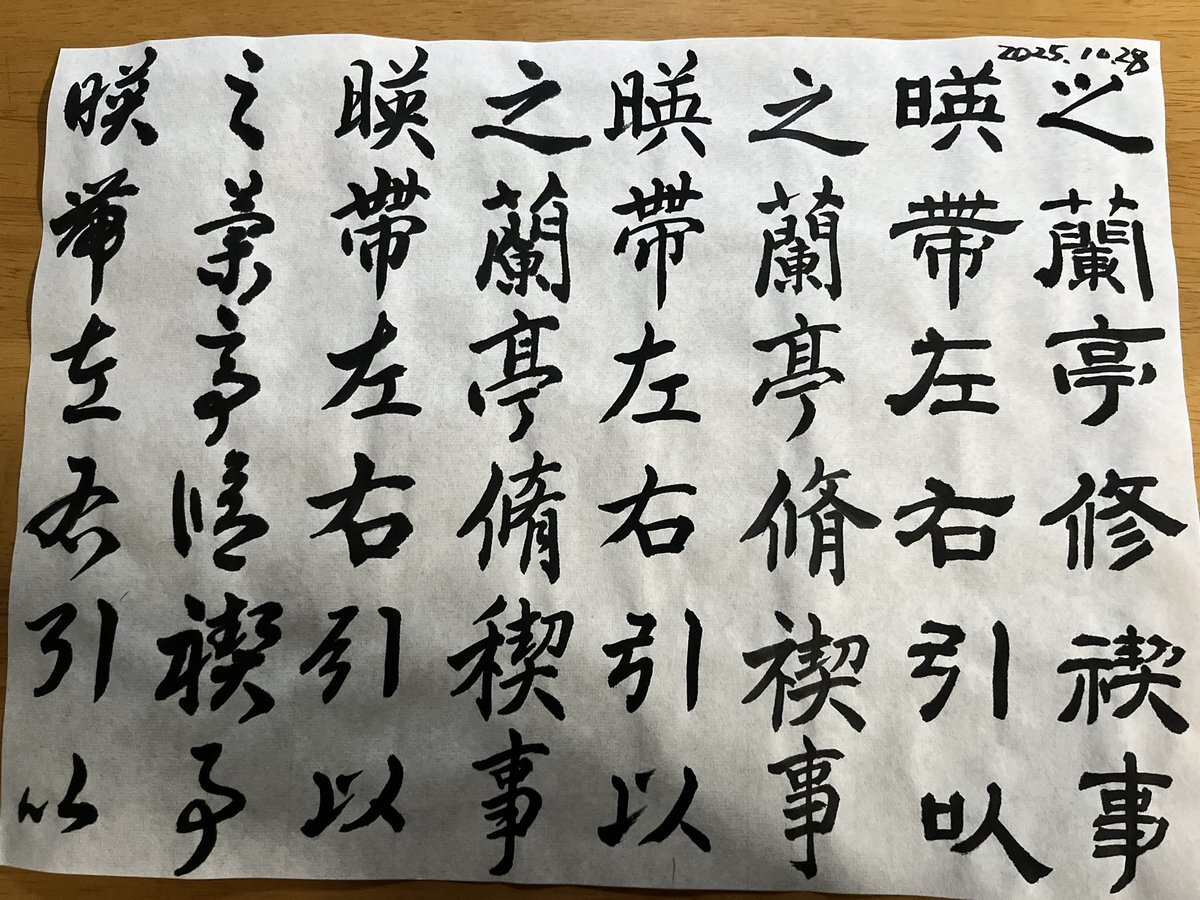 2025.10.28
之蘭亭修禊事
暎帶左右引以
之蘭亭脩禊事
暎帶左右引以
之蘭亭脩稧事
暎帶左右引以
之蘭亭脩禊事
暎帶左右引以